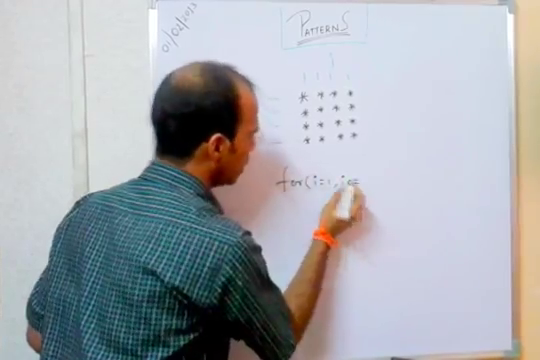 01/02/2013
PATTERNS
* * * *
* * * *
* * * *
* * * *
for(i=1,i<=